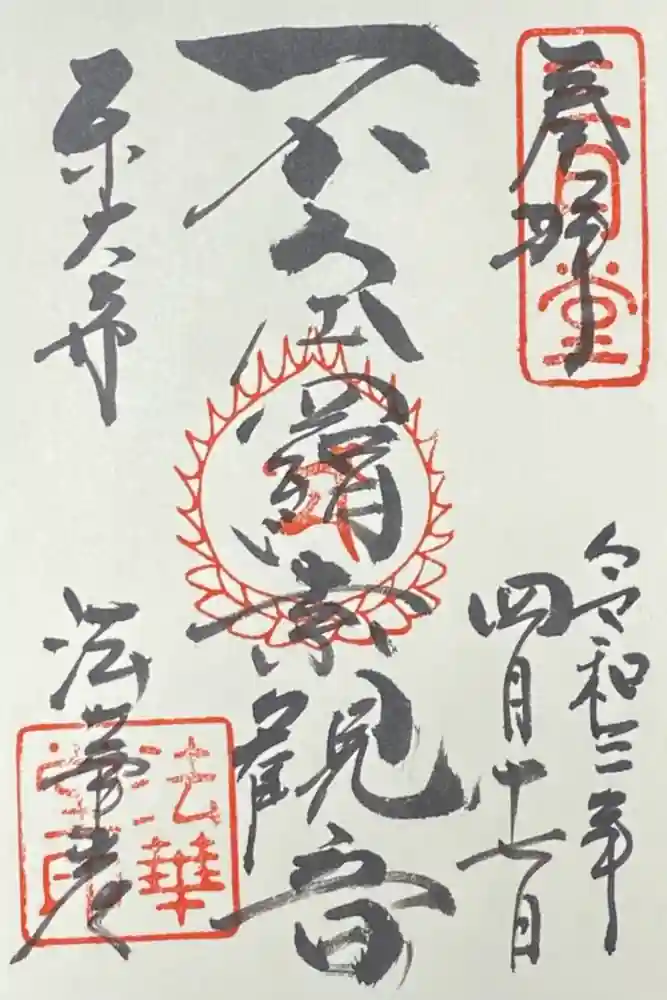 奉拝
三月堂
令和三年
四月十七日
不空羂索観音
東大寺
法華堂
法華堂印